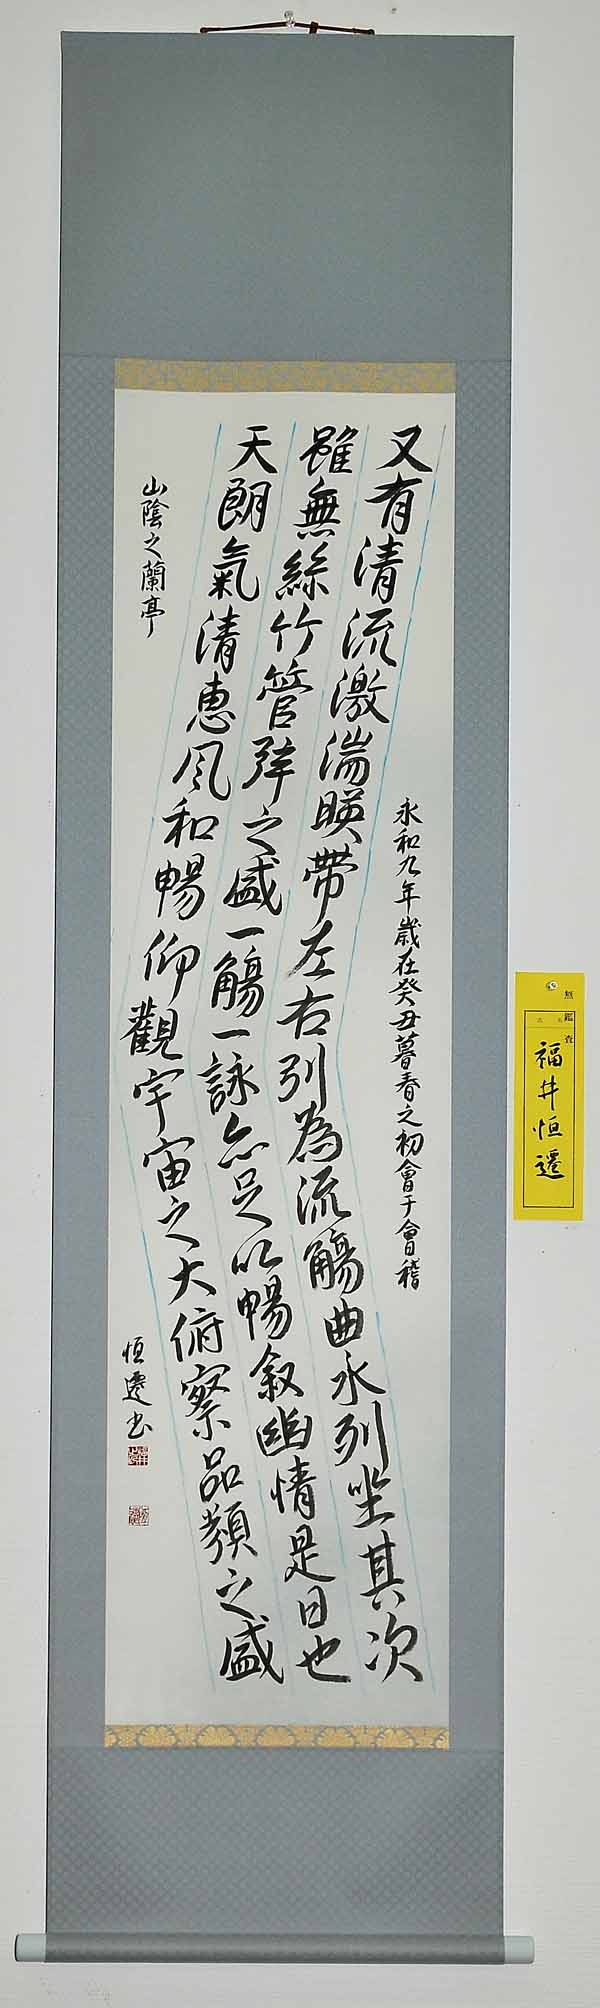 永和九年歳在癸丑暮春之初會于會稽
又有清流激湍暎帶左右引為流觴曲水列坐其次
雖無絲竹管弦之盛一觴一詠亦足以暢叙幽情是日也
天朗氣清惠風和暢仰觀宇宙之大俯察品類之盛
山陰之蘭亭
恒遷书
無鑑査
福井恒遷